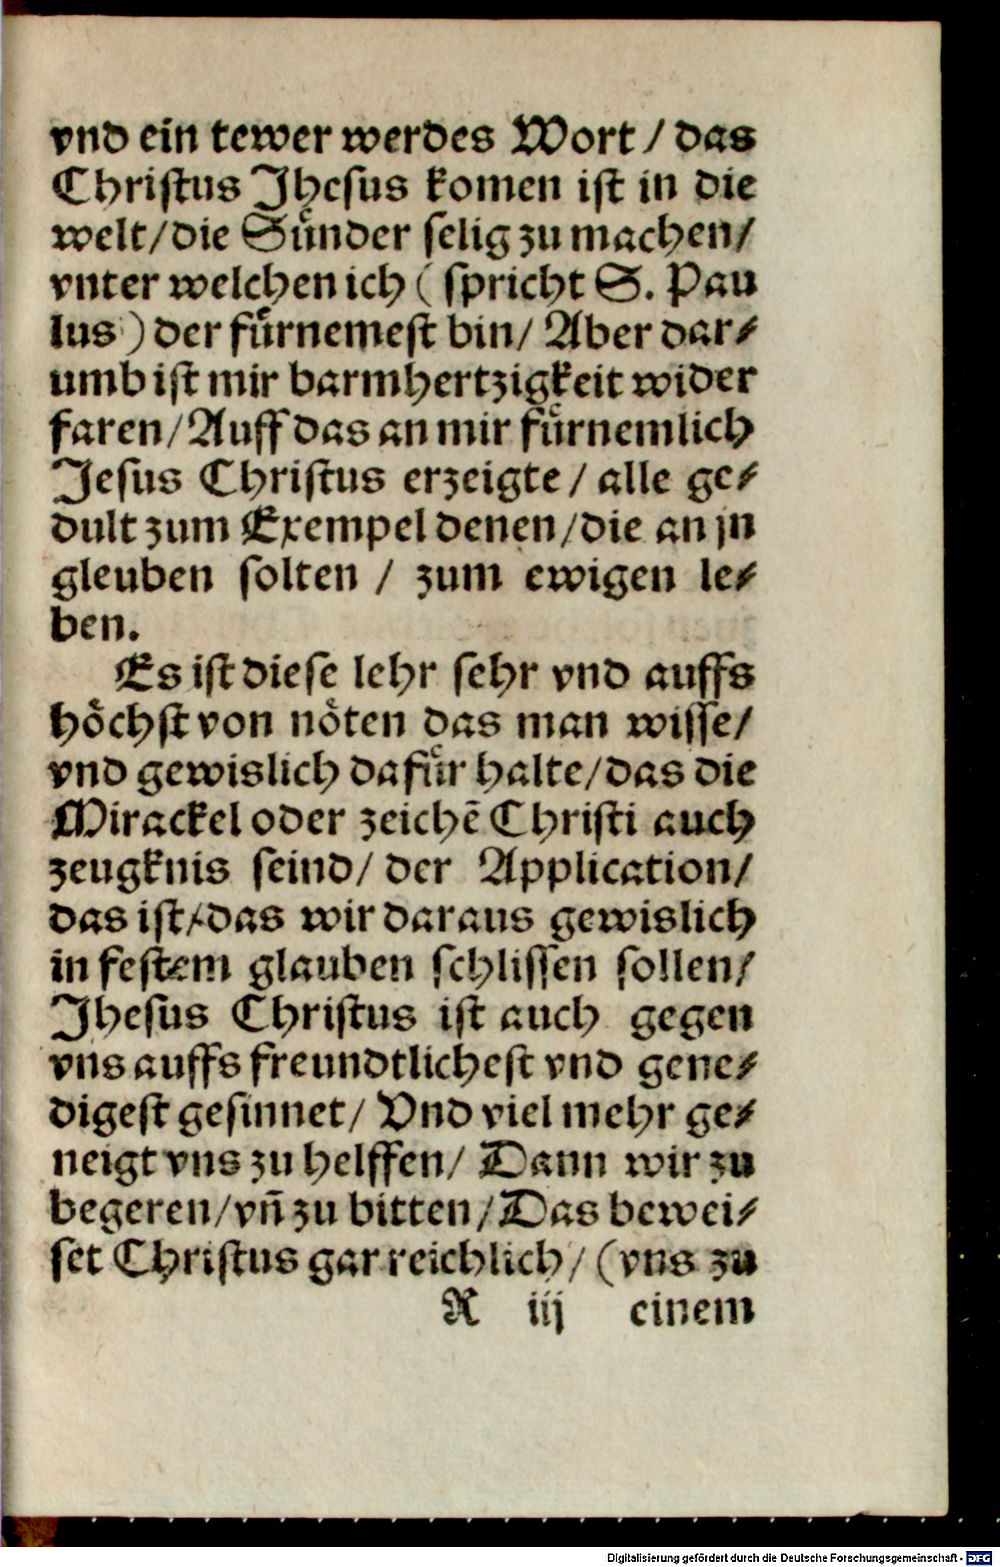 vnd ein tewer werdes Wort / das
Christus Jhesus komen ist in die
welt/die Sünder selig zu machen/
vnter welchen ich ( spricht S. Pau
lus ) der fürnemest bin/ Aber dar⸗
umb ist mir barmhertzigkeit wider
faren/Auff das an mir fürnemlich
Jesus Christus erzeigte / alle ge⸗
dult zum Exempel denen/die an jn
gleuben solten / zum ewigen le⸗
ben.
Es ist diese lehr sehr vnd auffs
höchst von nöten das man wisse/
vnd gewislich dafür halte/das die
Mirackel oder zeichẽ Christi auch
zeugknis seind/ der Application/
das ist/das wir daraus gewislich
in festem glauben schlissen sollen/
Jhesus Christus ist auch gegen
vns auffs freundtlichest vnd gene⸗
digest gesinnet/ Vnd viel mehr ge⸗
neigt vns zu helffen/ Dann wir zu
begeren/vñ zu bitten/Das bewei⸗
set Christus gar reichlich/ (vns zu
R iij einem
Digitalisierung gefördert durch die Deutsche Forschungsgemeinschaft - DFG